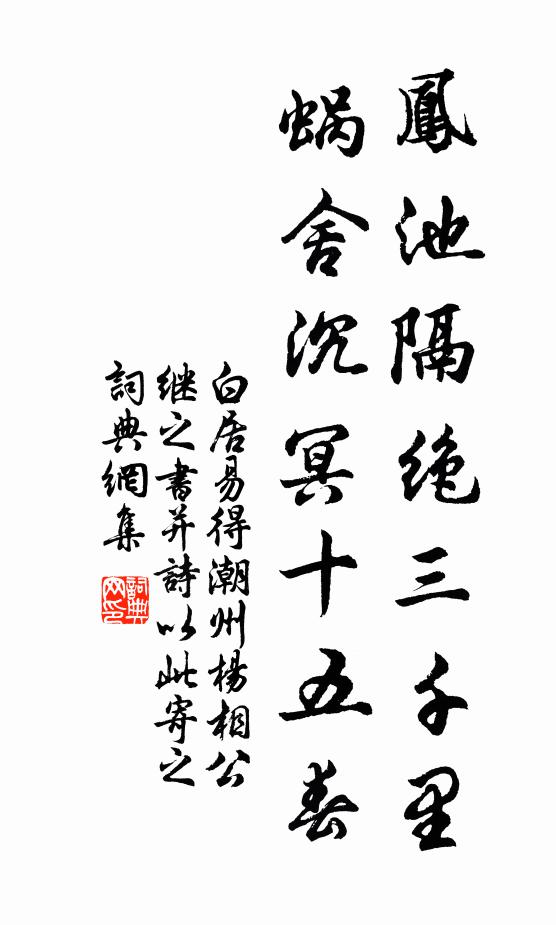 鳳池隔绝三千里
蝸舍沉冥十五春
白居易得潮州楊相公
继之書并詩以此寄之
詞典網集
詞典網印